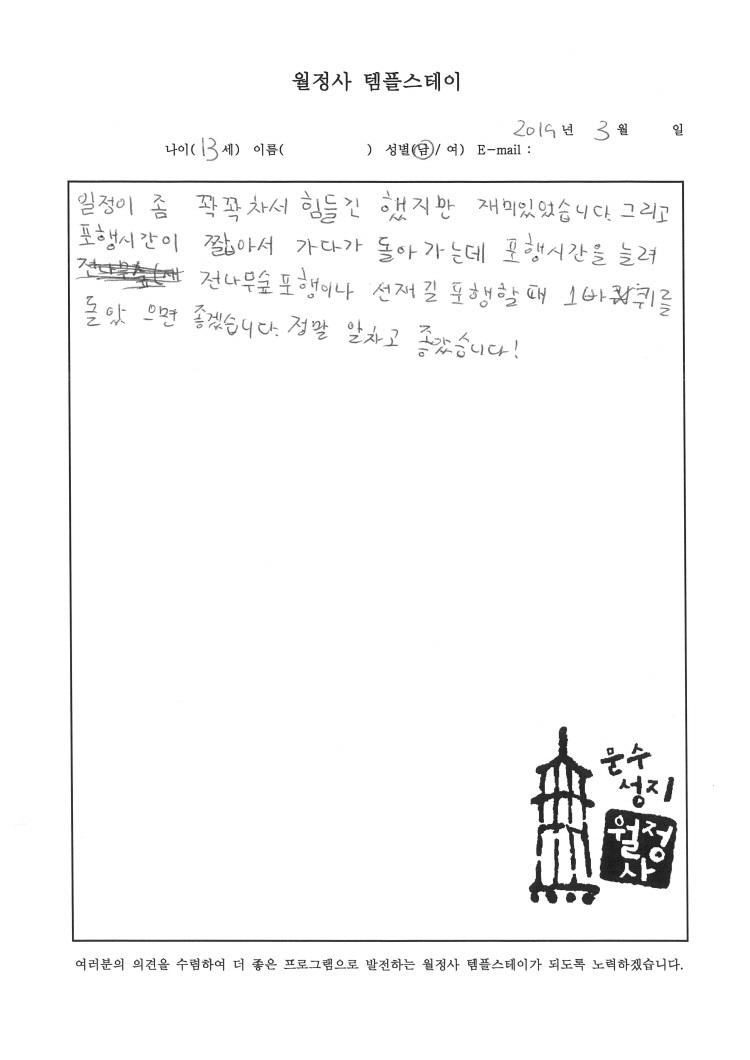 월정사 템플스테이
2019 년 3 월 일
나이( 13 세) 이름( ) 성별(남/ 여) E-mail :
일정이 좀 꽉꽉 차서 힘들긴 했지만 재미있었습니다. 그리고
포행시간이 짧아서 가다가 돌아가는데 포행시간을 늘려
전나무숲포행이나 선재길 포행할때 1바퀴를
돌았으면 좋겠습니다. 정말 알차고 좋았습니다!
문수
성지
월정
사
여러분의 의견을 수렴하여 더 좋은 프로그램으로 발전하는 월정사 템플스테이가 되도록 노력하겠습니다.